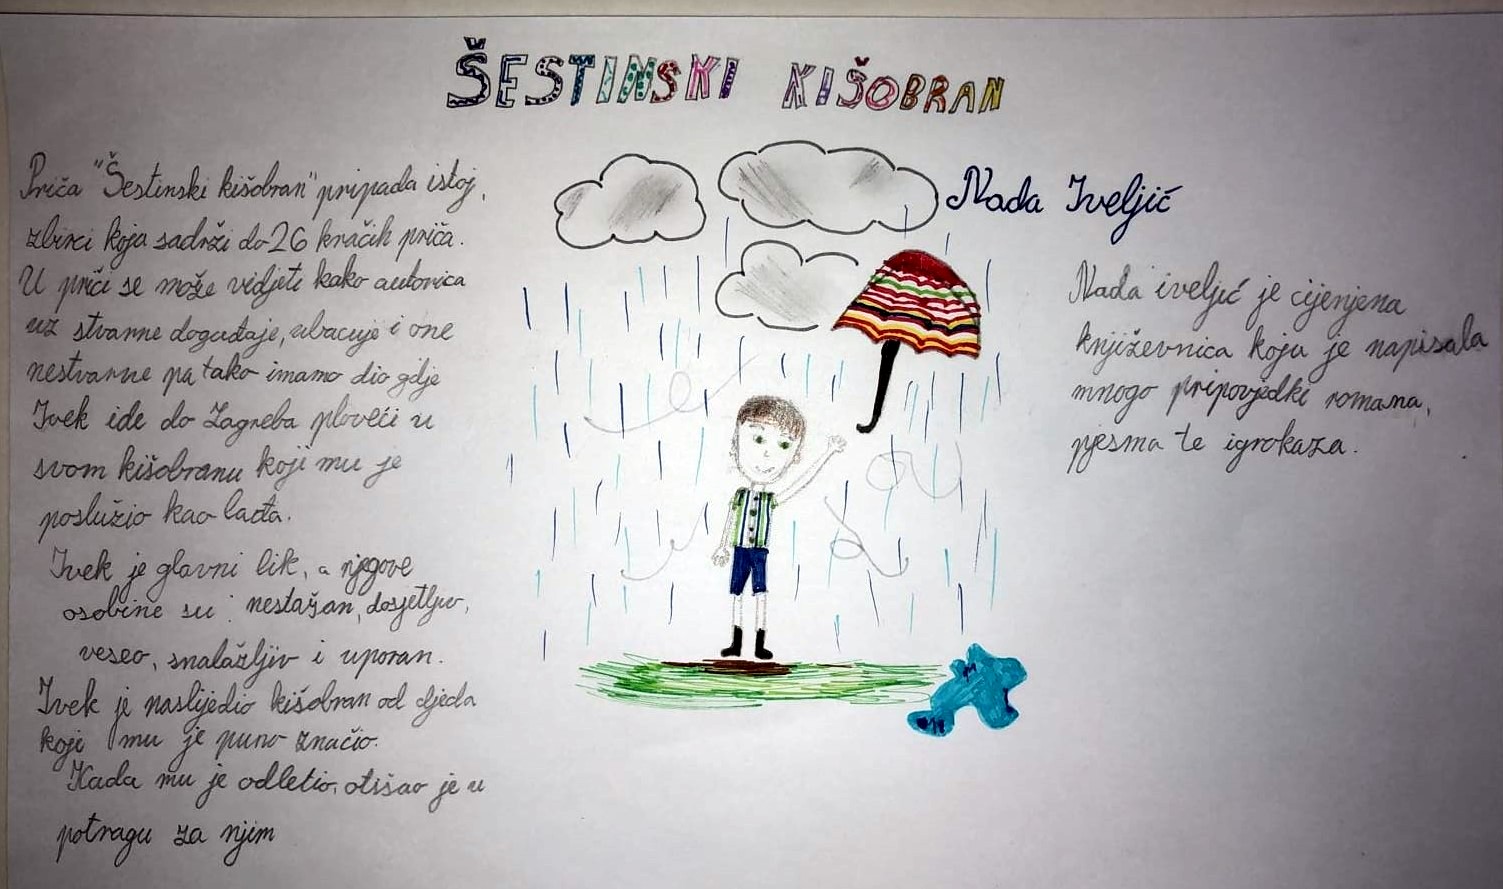 ŠESTINSKI KIŠOBRAN
Priča "Šestinski kišobran" pripada istoj,
zbirci koja sadrži do 26 kračih priča.
U priči se može vidjeti kako autorica
uz stvarne događaje, ubacuje i one
nestvarne pa tako imamo dio gdje
Ivek ide do Zagreba ploveći u
svom kišobranu koji mu je
poslužio kao lađa.
Ivek je glavni lik, a njegove
osobine su: nestašan, dosjetljiv,
veseo, snalažljiv i uporan.
Ivek je naslijedio kišobran od djeda
koji mu je puno značio.
Kada mu je odletio, otišao je u
potragu za njim
Nada Iveljić
Nada iveljić je cijenjena
književnica koja je napisala
mnogo pripovjedki romana,
pjesma te igrokaza.